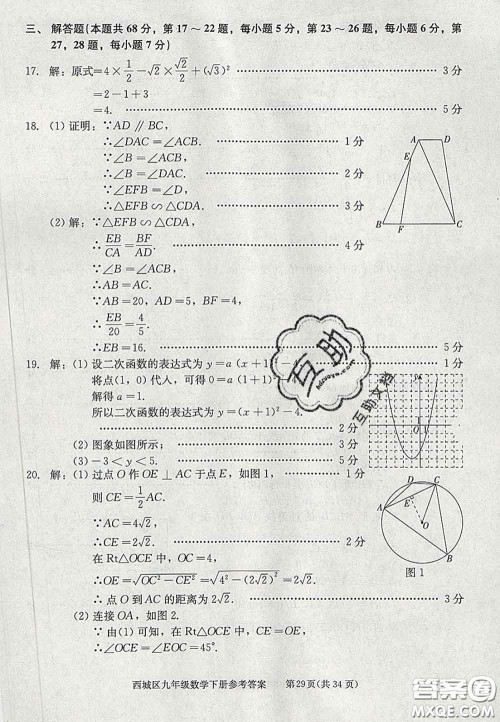 三、解答题(本题共 68 分，第 17～22 题，每小题 5 分，第 23～26 题，每小题 6 分，第
27，28 题，每小题 7 分)
17. 解：原式=4×1/2-√2×√2/2+(√3)² 3 分
=2-1+3
=4. 5 分
18. (1) 证明：∵AD∥BC，
∴∠DAC=∠ACB. 1 分
∵∠BAC=∠ACB，
∴∠BAC=∠DAC. 2 分
∵∠EFB=∠D，
∴△EFB∽△CDA. 3 分
(2) 解：∵△EFB∽△CDA，
∴EB/CA=BF/AD. 4 分
∵∠BAC=∠ACB，
∴AB=AC.
∵AB=20，AD=5，BF=4，
∴EB/20=4/5.
∴EB=16. 5 分
A D
E
B F C
19. 解：(1) 设二次函数的表达式为 y=a(x+1)²- 1 分
将点(1，0)代入，可得 0=a(1+1)²
解得 a=1.
所以二次函数的表达式为 y=(x+1)²-4. 2 分
(2) 图象如图所示； 3 分
(3) -3<y<5. 5 分
20. 解：(1) 过点 O 作 OE⊥AC 于点 E，如图 1，
则 CE=1/2AC. 1 分
∵AC=4√2，
∴CE=2√2. 2 分
在 Rt△OCE 中，OC=4，
∴OE=√(OC²-CE²)=√(4²-(2√2)²)=2√2.
∴点 O 到 AC 的距离为 2√2. 3 分
(2) 连接 OA，如图 2.
∵由(1)可知，在 Rt△OCE 中，
D C
A E
O
B
图 1
互助
互助文档
西城区九年级数学下册参考答案 第29页(共 34 页)